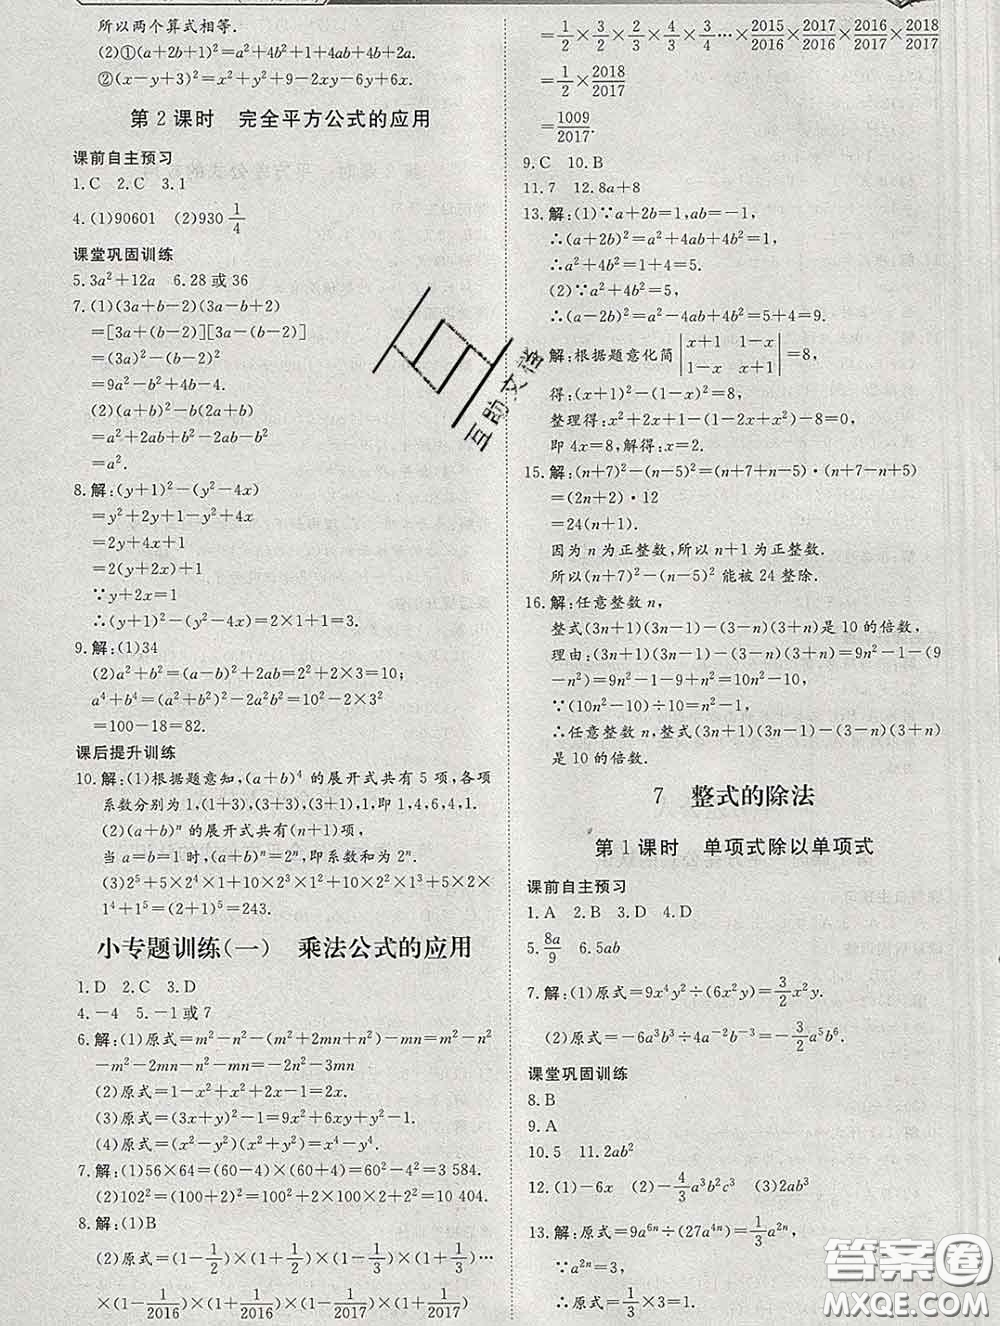 所以两个算式相等.
(2)①(a+2b+1)²=a²+4b²+1+4ab+4b+2a.
②(x-y+3)²=x²+y²+9-2xy-6y+6x.
第2课时 完全平方公式的应用
课前自主预习
1.C 2.C 3.1
4.(1)90601 (2)930 1/4
课堂巩固训练
5.3a²+12a 6.28或36
7.(1)(3a+b-2)(3a-b+2)
=[3a+(b-2)][3a-(b-2)]
=(3a)²-(b-2)²
=9a²-b²+4b-4.
(2)(a+b)²-b(2a+b)
=a²+2ab+b²-2ab-b²
=a².
8.解:(y+1)²-(y²-4x)
=y²+2y+1-y²+4x
=2y+4x+1
=2(y+2x)+1
∵y+2x=1
∴(y+1)²-(y²-4x)=2×1+1=3.
9.解:(1)34
(2)(a²+b²)=(a-b)²+2ab=2²+2×3=10.
a⁴+b⁴=(a²+b²)²-2a²b²=10²-2×3²
=100-18=82.
课后提升训练
10.解:(1)根据题意知,(a+b)⁴的展开式共有5项,各项
系数分别为1,(1+3),(3+3),(3+1),1,即1,4,6,4,1.
(2)(a+b)ⁿ的展开式共有(n+1)项,
当a=b=1时,(a+b)ⁿ=2ⁿ,即系数和为2ⁿ.
(3)2⁵+5×2⁴×1+10×2³×1²+10×2²×1³+5×2×
1⁴+1⁵=(2+1)⁵=243.
小专题训练(一) 乘法公式的应用
1.D 2.C 3.D
4.-4 5.-1或7
6.解:(1)原式=m²-n²-(m²+2mn+n²)-mn=m²-n²
-m²-2mn-n²-mn=-2n²-3mn
(2)原式=1-x²+x²+2x-1=2x.
(3)原式=(3x+y)²-1=9x²+6xy+y²-1.
(4)原式=(x²-y²)(x²+y²)=x⁴-y⁴.
7.解:(1)56×64=(60-4)×(60+4)=60²-4²=3 584.
(2)102²=(100+2)²=100²+2×100×2+2²=10 404.
8.解:(1)B
(2)原式=(1-1/2)×(1+1/2)×(1-1/3)×(1+1/3)…
×(1-1/2016)×(1+1/2016)×(1-1/2017)×(1+1/2017)
=1/2×3/2×2/3×4/3×3/4…×2015/2016×2017/2016×2016/2017×2018/2017
=1/2×2018/2017
=1009/2017.
9.C 10.B
11.7 12.8a+8
13.解:(1)∵a+2b=1,ab=-1,
∴(a+2b)²=a²+4ab+4b²=1,
∴a²+4b²=1+4=5.
(2)∵a²+4b²=5,
∴(a-2b)²=a²-4ab+4b²=5+4=9.
解:根据题意化简|x+1 1-x|=8,
|1-x x+1|
得:(x+1)²-(1-x)²=8,
整理得:x²+2x+1-(1-2x+x²)-8=0,
即4x=8,解得:x=2.
15.解:(n+7)²-(n-5)²=(n+7+n-5)·(n+7-n+5)
=(2n+2)·12
=24(n+1).
因为n为正整数,所以n+1为正整数.
所以(n+7)²-(n-5)²能被24整除.
16.解:任意整数n,
整式(3n+1)(3n-1)-(3-n)(3+n)是10的倍数,
理由:(3n+1)(3n-1)-(3-n)(3+n)=9n²-1-(9
-n²)=9n²-1-9+n²=10n²-10,
∵(10n²-10)÷10=n²-1,
∴任意整数n,整式(3n+1)(3n-1)-(3-n)(3+n)
是10的倍数.
7 整式的除法
第1课时 单项式除以单项式
课前自主预习
1.A 2.B 3.D 4.D
5.8a/9 6.5ab
7.解:(1)原式=9x⁴y²÷(6x²y)=3/2x²y.
(2)原式=-6a³b³÷4a⁻²b⁻³=-3/2a⁵b⁶.
课堂巩固训练
8.B
9.A
10.5 11.2ab²
12.(1)-6x (2)-4/3a³b²c³ (3)2ab²
13.解:原式=9a⁶ⁿ÷(27a⁴ⁿ)=1/3a²ⁿ,
∵a²ⁿ=3,
∴原式=1/3×3=1.
互助文档
答案圈
MXQE.COM